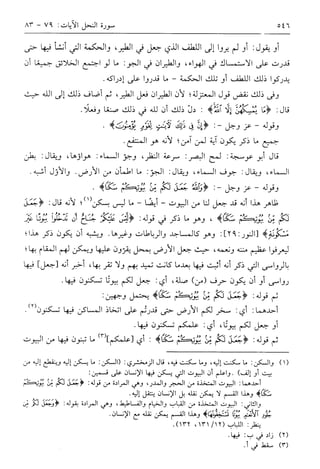 ٥٤٦
سورة النحل الآيات: ٧٩ - ٨٣
أو يقول: أو لم يروا إلى اللطف الذي جعل في الطير، والحكمة التي أنشأ فيها حتى
قدرت على الاستمساك في الهواء، والطيران في الجو: ما لو اجتمع الخلائق جميعًا أن
يدركوا ذلك اللطف أو تلك الحكمة - ما قدروا على إدراكه.
وفي ذلك نقض قول المعتزلة؛ لأن الطيران فعل الطير، ثم أضاف ذلك إلى الله حيث
قال: ﴿مَا يُمْسِكُهُنَّ إِلَّا اللَّهُ﴾: دلّ ذلك أن لله في ذلك صنعًا وفعلًا.
وقوله - عز وجل -: ﴿إِنَّ فِي ذَلِكَ لَآيَاتٍ لِقَوْمٍ يُؤْمِنُونَ﴾.
جميع ما ذكر يكون آية لمن آمن؛ لأنه هو المنتفع.
قال أبو عوسجة: لمح البصر: سرعة النظر، وجوّ السماء: هواؤها، ويقال: بطن
السماء، ويقال: جوف السماء، ويقال: الجوّ: ما اطمأن من الأرض. والأول أشبه.
وقوله - عز وجل -: ﴿وَاللَّهُ جَعَلَ لَكُمْ مِنْ بُيُوتِكُمْ سَكَنًا﴾.
ظاهر هذا أنه قد جعل لنا من البيوت - أيضًا - ما ليس بسكن(١)؛ لأنه قال: ﴿جَعَلَ
لَكُمْ مِنْ بُيُوتِكُمْ سَكَنًا﴾، وهو ما ذكر في قوله: ﴿لَيْسَ عَلَيْكُمْ جُنَاحٌ أَنْ تَدْخُلُوا بُيُوتًا غَيْرَ
مَسْكُونَةٍ﴾ [النور: ٢٩]: وهو كالمساجد والرباطات وغيرها. ويشبه أن يكون ذكر هذا؛
ليعرفوا عظيم مننه ونعمه، حيث جعل الأرض بمحل يقرّون عليها ويمكن لهم المقام بها؛
بالرواسي التي ذكر أنه أثبت فيها بعدما كانت تميد بهم ولا تقر بها، أخبر أنه [جعل] فيها
رواسي أو أن يكون حرف (من) صلة، أي: جعل لكم بيوتًا تسكنون فيها.
ثم قوله: ﴿جَعَلَ لَكُمْ مِنْ بُيُوتِكُمْ سَكَنًا﴾ يحتمل وجهين:
أحدهما: أي: سخر لكم الأرض حتى قدرتم على اتخاذ المساكن فيها تسكنون(٢).
أو جعل لكم بيوتًا، أي: علمكم تسكنون فيها.
ثم قوله: ﴿جَعَلَ لَكُمْ مِنْ بُيُوتِكُمْ سَكَنًا﴾: أي [علمكم](٣) ما تبنون فيها من البيوت
(١) والسكن: ما سكنت إليه، وما سكنت فيه، قال الزمخشري: (السكن: ما يسكن إليه وينقطع إليه من
بيت أو إلف). واعلم أن البيوت التي يسكن فيها الإنسان على قسمين:
أحدهما: البيوت المتخذة من الحجر والمدر، وهي المرادة من قوله: ﴿جَعَلَ لَكُمْ مِنْ بُيُوتِكُمْ
سَكَنًا﴾ وهذا القسم لا يمكن نقله بل الإنسان ينتقل إليه.
والثاني: البيوت المتخذة من القباب والخيام والفساطيط، وهي المرادة بقوله: ﴿وَجَعَلَ لَكُمْ مِنْ
جُلُودِ الْأَنْعَامِ بُيُوتًا تَسْتَخِفُّونَهَا﴾ وهذا القسم يمكن نقله مع الإنسان.
ينظر: اللباب (١٢/ ١٣١، ١٣٢).
(٢) زاد في ب: فيها.
(٣) سقط في أ.